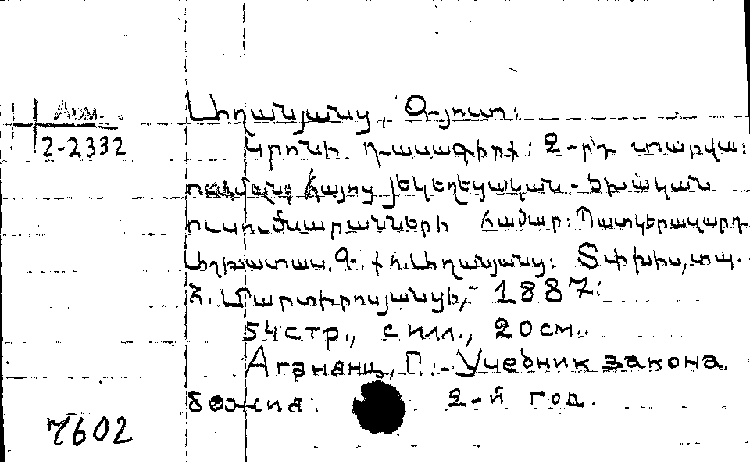 Арм.
2-2332
Աղանյանց, Գյուտ։
Կրոնի դասագիրք։ 2-րդ տարվա։
ուսման հայոց յեկեղեցական-ծխական
ուսումնարանների համար։ Պատկերազարդ
Տփխիս, տպ.
Մ. Մարտիրոսյանցի, 1887։
54 стр., с илл., 20 см.
Агананц, Г. - Учебник закона
божия. 2-й год.
7602